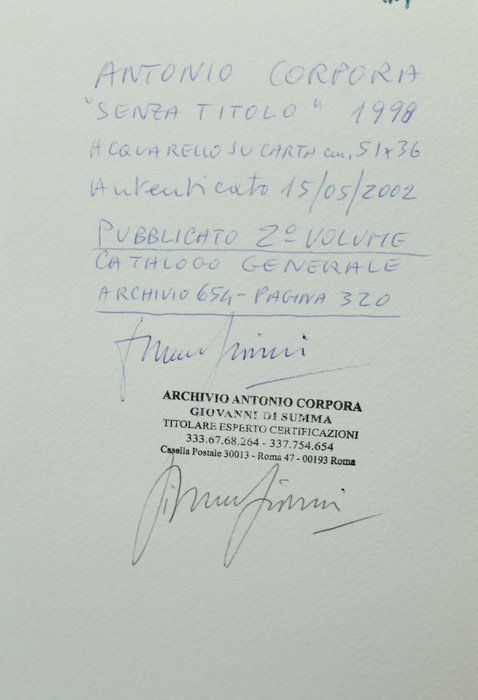 ANTONIO CORPORA
"SENZA TITOLO" 1998
ACQUARELLO SU CARTA cm. 51x36
Autenticato 15/05/2002
PUBBLICATO 2º VOLUME
CATALOGO GENERALE
ARCHIVIO 654 - PAGINA 320
ARCHIVIO ANTONIO CORPORA
GIOVANNI DI SUMMA
TITOLARE ESPERTO CERTIFICAZIONI
333.67.68.264 - 337.754.654
Casella Postale 30013 - Roma 47 - 00193 Roma